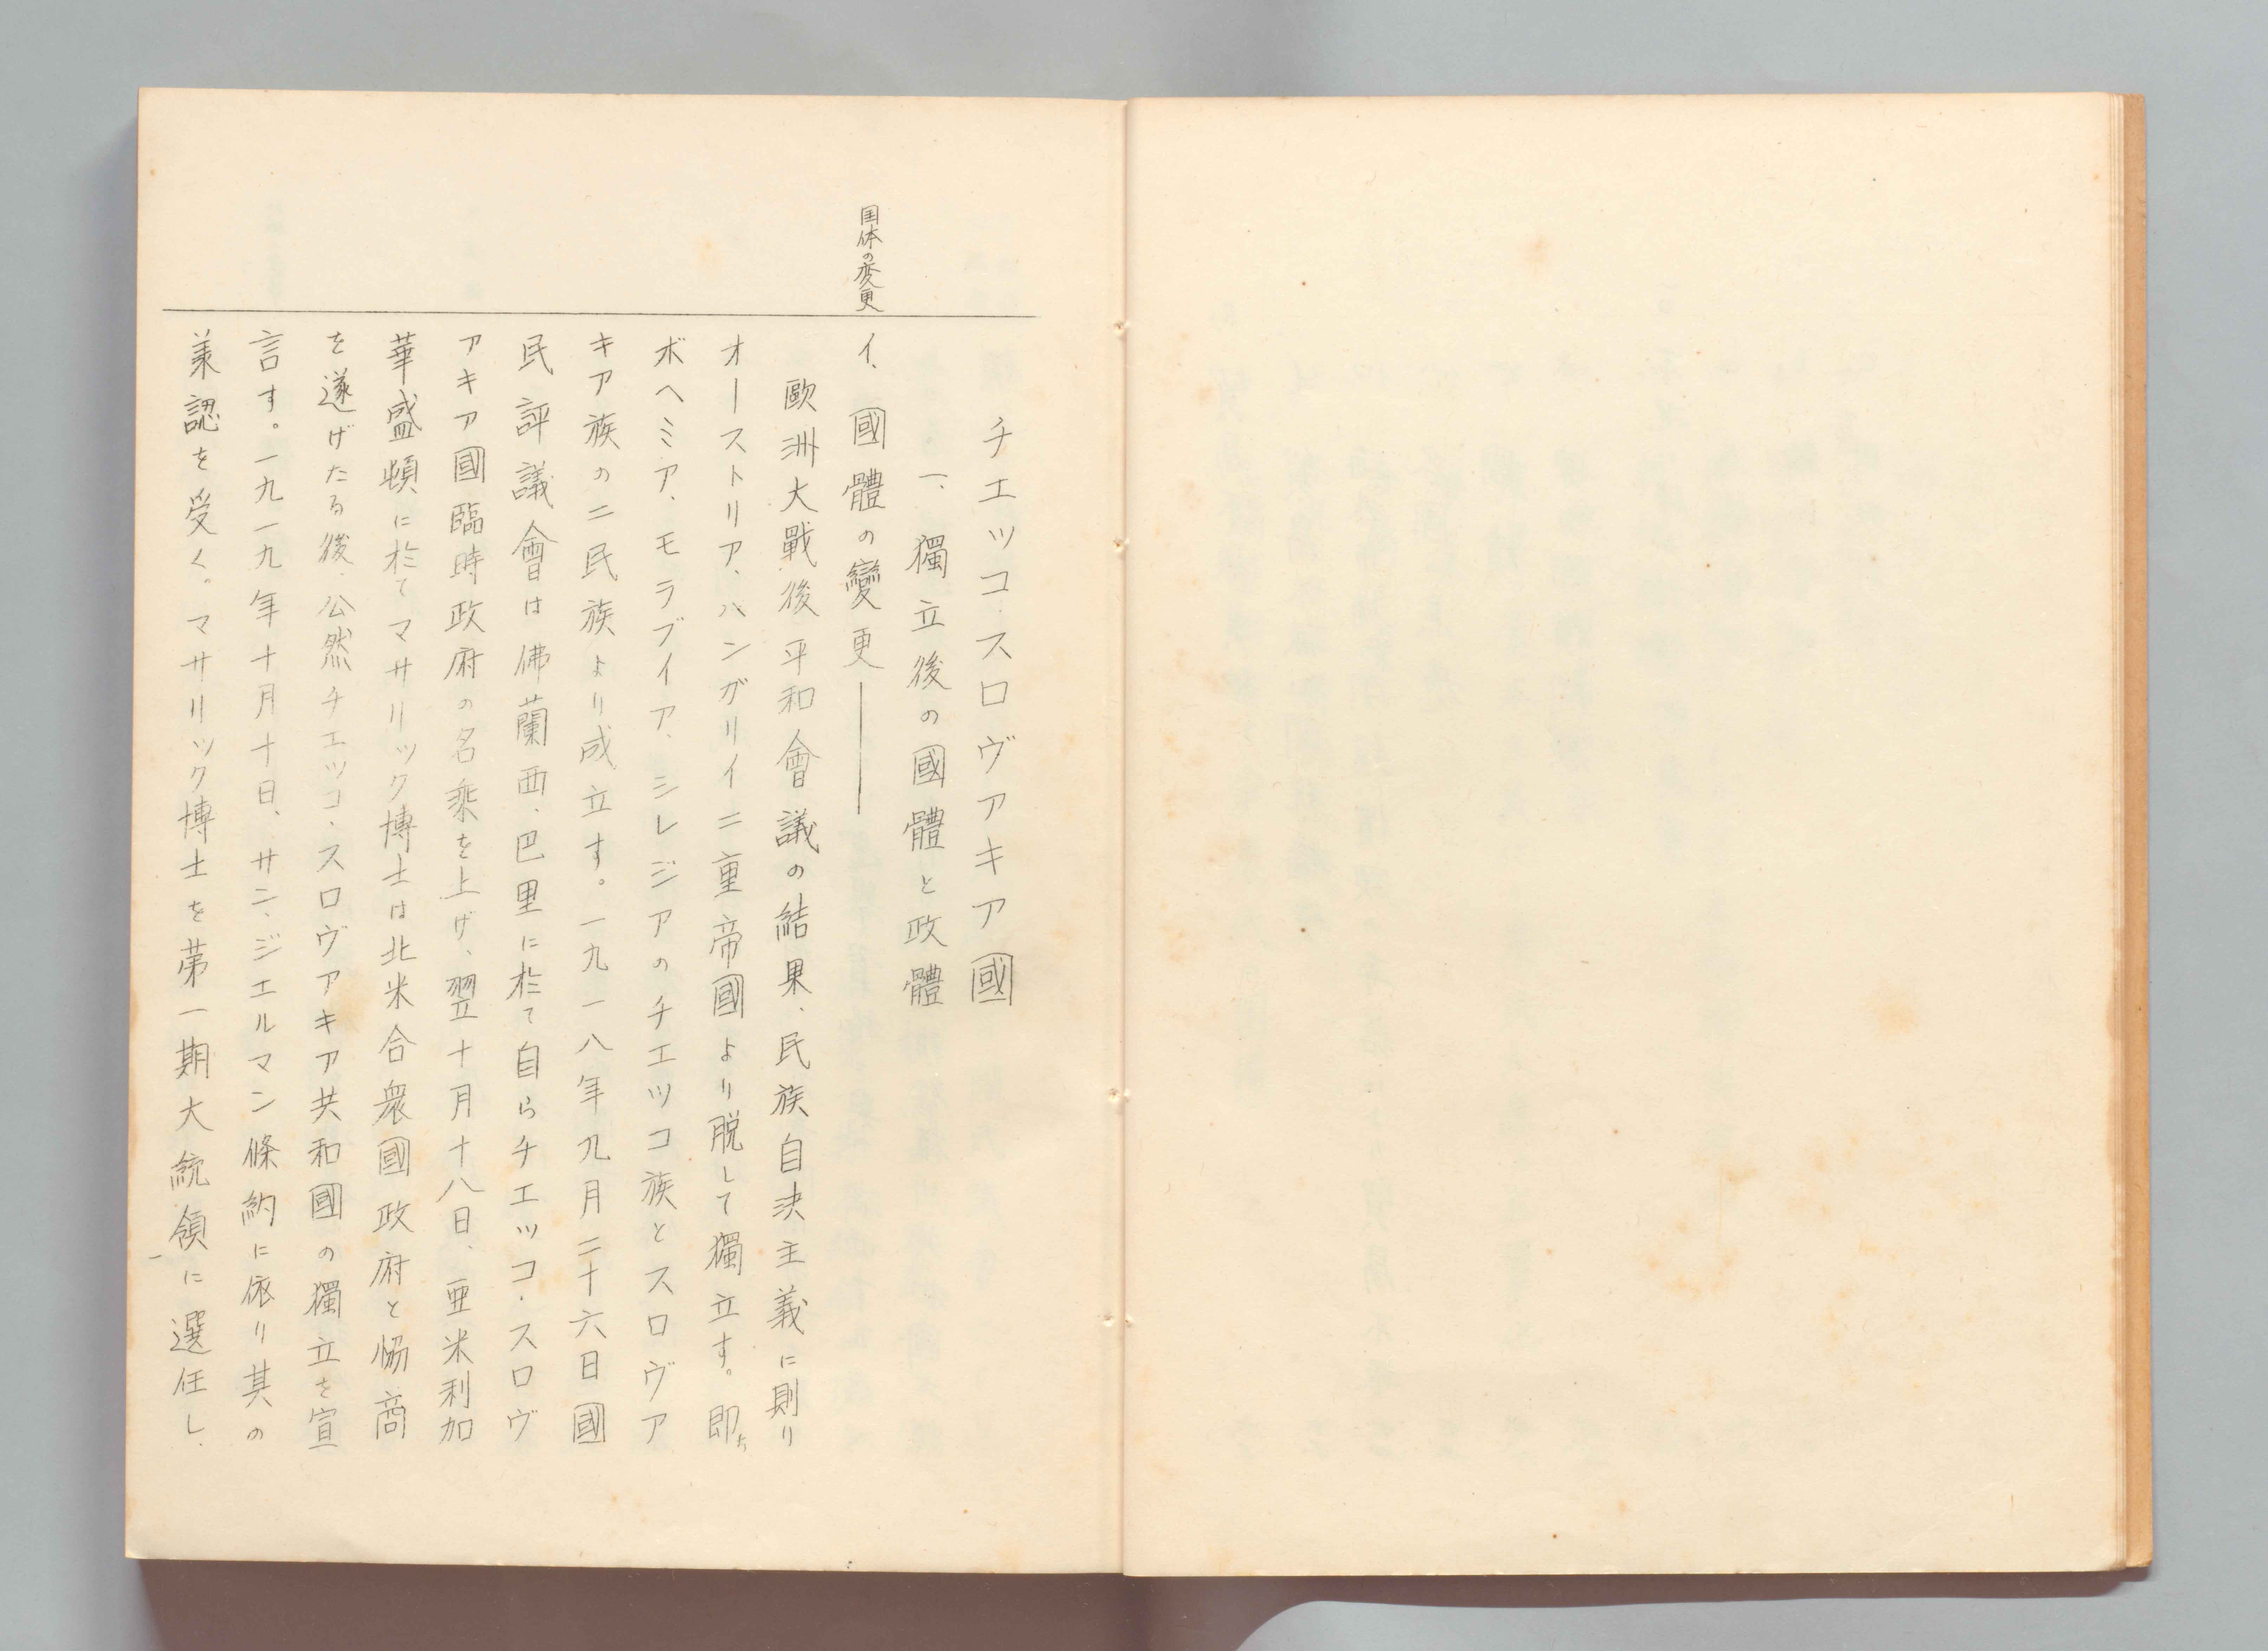 チエッコ・スロヴアキア國
一、獨立後の國體と政體
国体の変更
イ、國體の變更――
歐洲大戰後平和會議の結果、民族自決主義に則り
オーストリア、ハンガリイ二重帝國より脱して獨立す。即ち
ボヘミア、モラブイア、シレジアのチエツコ族とスロヴア
キア族の二民族より成立す。一九一八年九月二十六日國
民評議會は佛蘭西、巴里に於て自らチエッコ・スロヴ
アキア國臨時政府の名乘を上げ、翌十月十八日、亜米利加
華盛頓に於てマサリック博士は北米合衆國政府と協商
を遂げたる後、公然チエッコ・スロヴアキア共和國の獨立を宣
言す。一九一九年十月十日、サン、ジエルマン條約に依り其の
承認を受く。マサリック博士を第一期大統領に選任し、
一